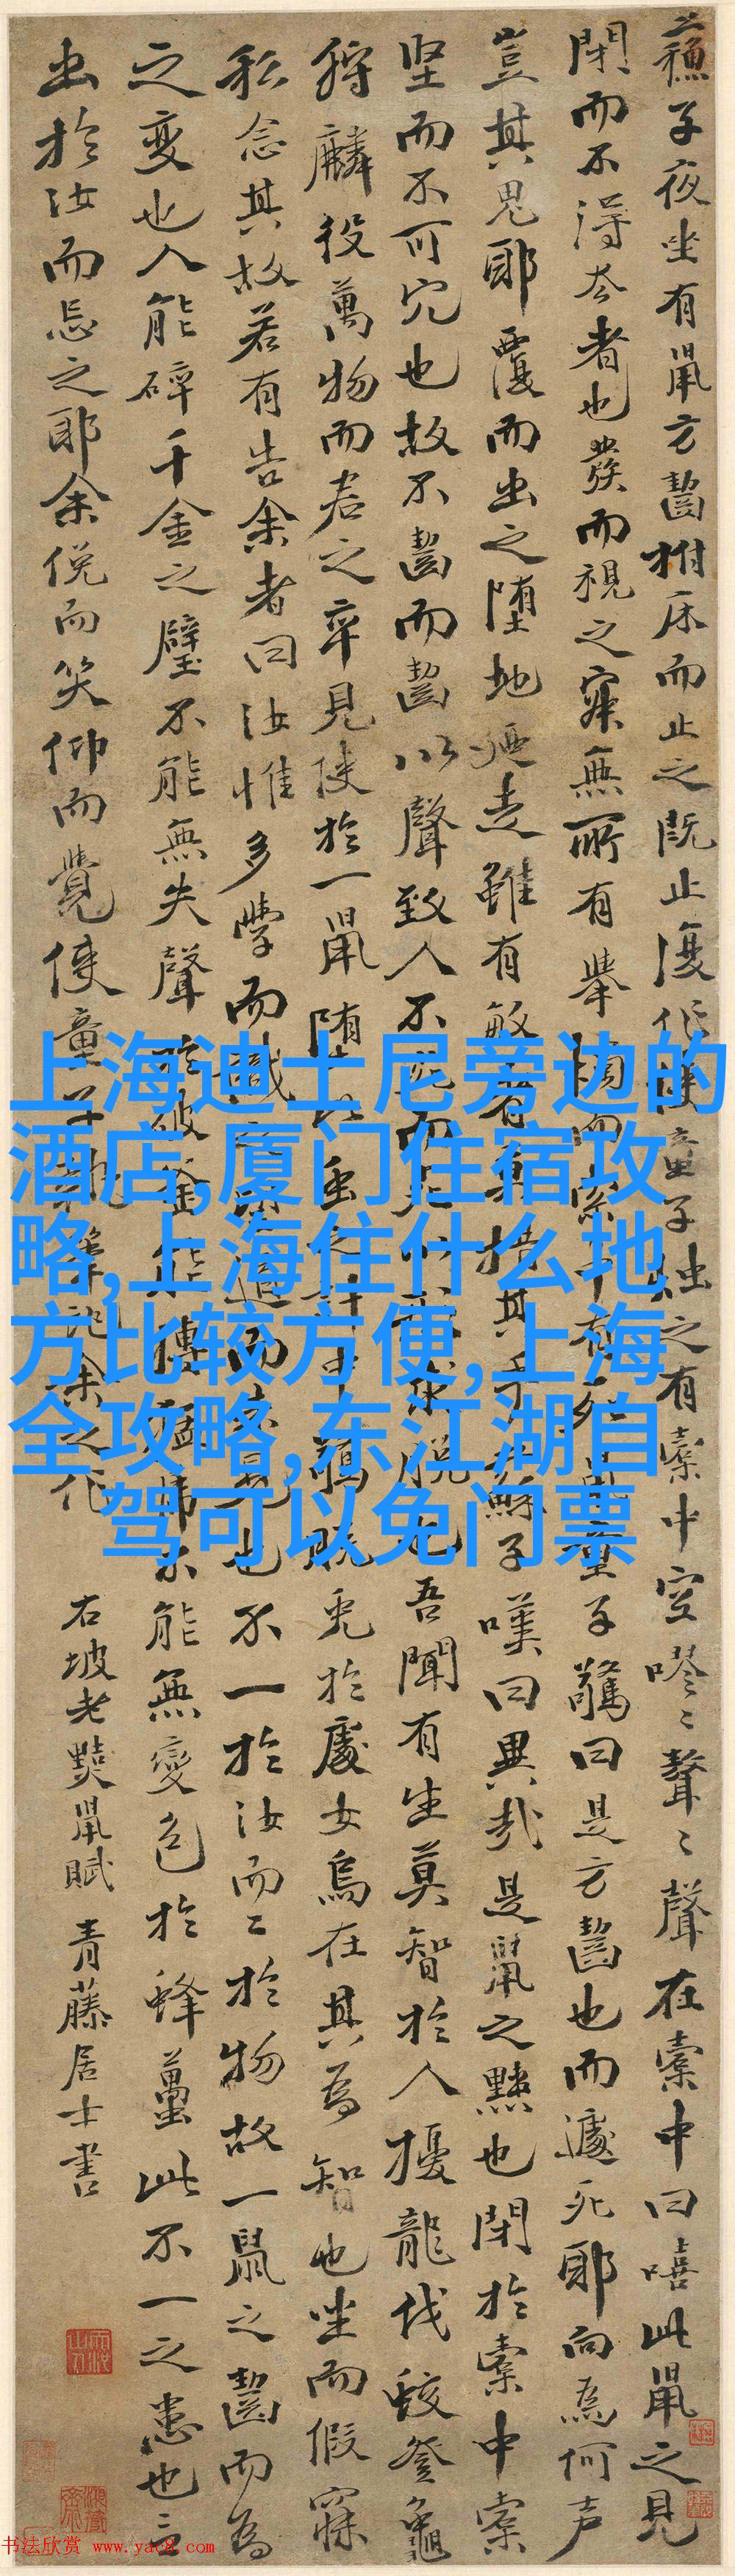 蘇子夜坐有鼠方齧拊床而止之既止復作使童子燭之有橐中空嘐〻聱〻聲在橐中曰嘻此鼠之見
閉而不得去者也發而視之寂無所有舉燭而索中有死鼠童子驚曰是方齧也而遽死耶向為何声
豈其鬼耶覆而出之墮地迺走雖有敏者莫措其手蘇子嘆曰異哉是鼠之黠也閉於橐中橐
坚而不可穴也故不齧而齧以聲致人不死而死以形求脱也吾聞有生莫智於人擾龍伐蛟登龜
狩麟役萬物而君之卒見使於一鼠墮此虫之計中驚脱兎於處女烏在其為智也坐而假寐
私念其故若有告余者曰汝惟多學而識之望道而未見也不一於汝而二於物故一鼠之齧而為
之变也人能碎千金之璧不能無失聲於破釜能搏猛虎不能無變色於蜂蠆此不一之患也言
出於汝而忘之耶余俛而笑仰而覺使童子執筆記余之作
右坡老黠鼠賦 青藤居士書
上海迪士尼旁边的
酒店,厦门住宿攻
略,上海住什么地
方比较方便,上海
全攻略,东江湖自
驾可以免门票
书法欣赏 www.yac8.com